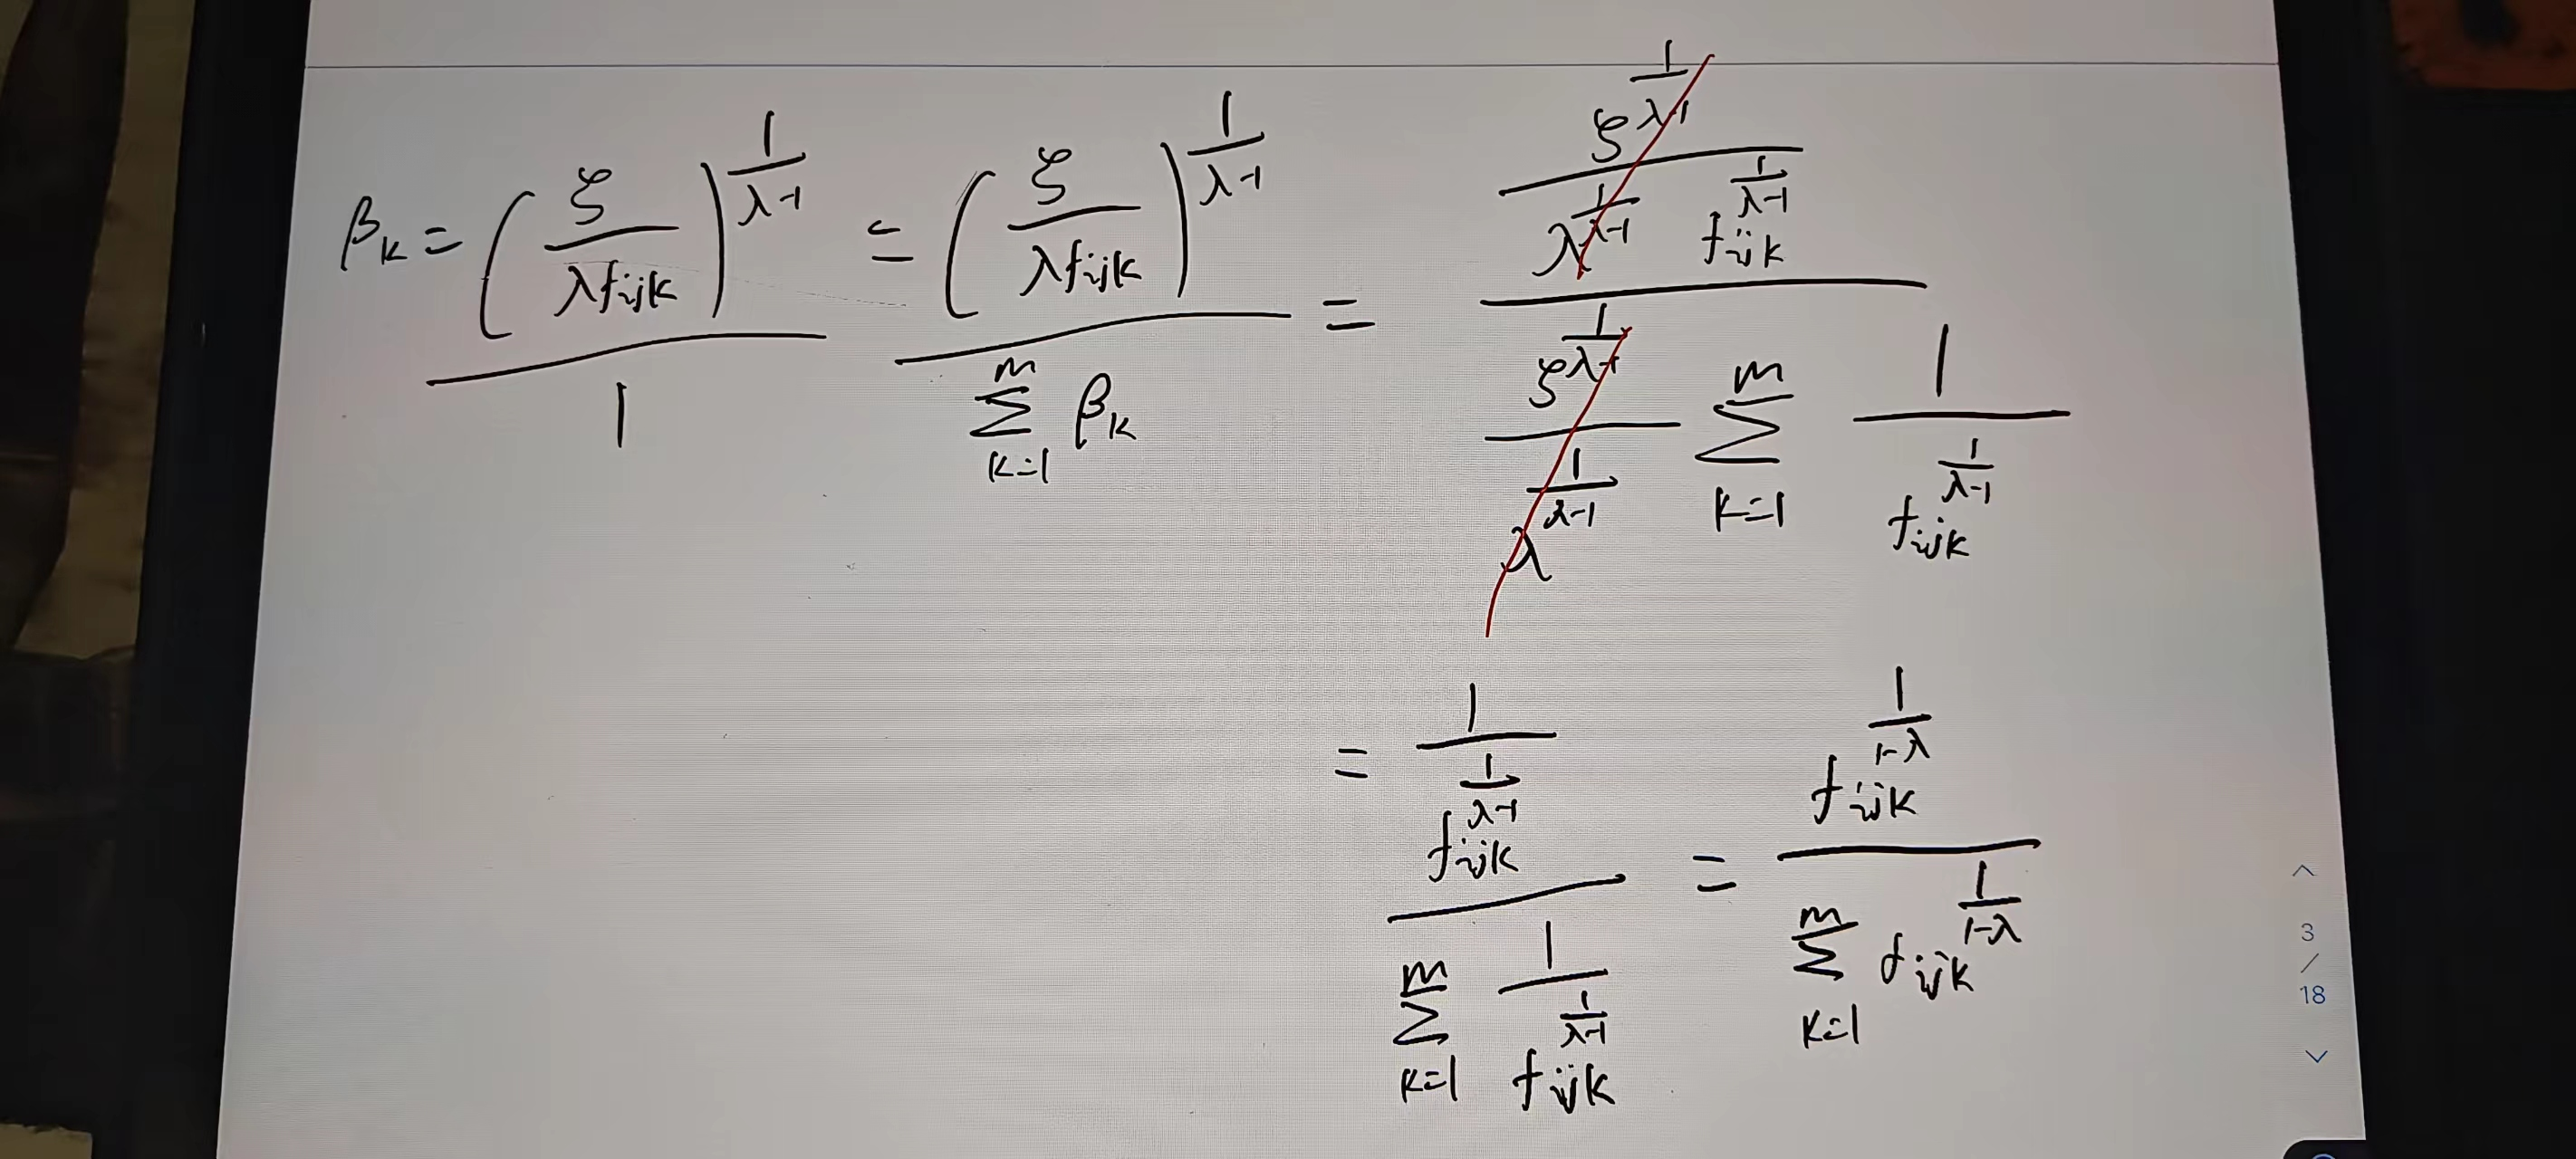 β_k = (ξ / (λ f_{ijk}))^{1/(λ-1)} / 1 = (ξ / (λ f_{ijk}))^{1/(λ-1)} / ∑_{k=1}^{m} β_k = (ξ^{1/(λ-1)} / (λ^{1/(λ-1)} f_{ijk}^{1/(λ-1)})) / ((ξ^{1/(λ-1)} / λ^{1/(λ-1)}) ∑_{k=1}^{m} 1 / f_{ijk}^{1/(λ-1)})
= (1 / f_{ijk}^{1/(λ-1)}) / (∑_{k=1}^{m} 1 / f_{ijk}^{1/(λ-1)}) = f_{ijk}^{1/(1-λ)} / ∑_{k=1}^{m} f_{ijk}^{1/(1-λ)}
3
/
18